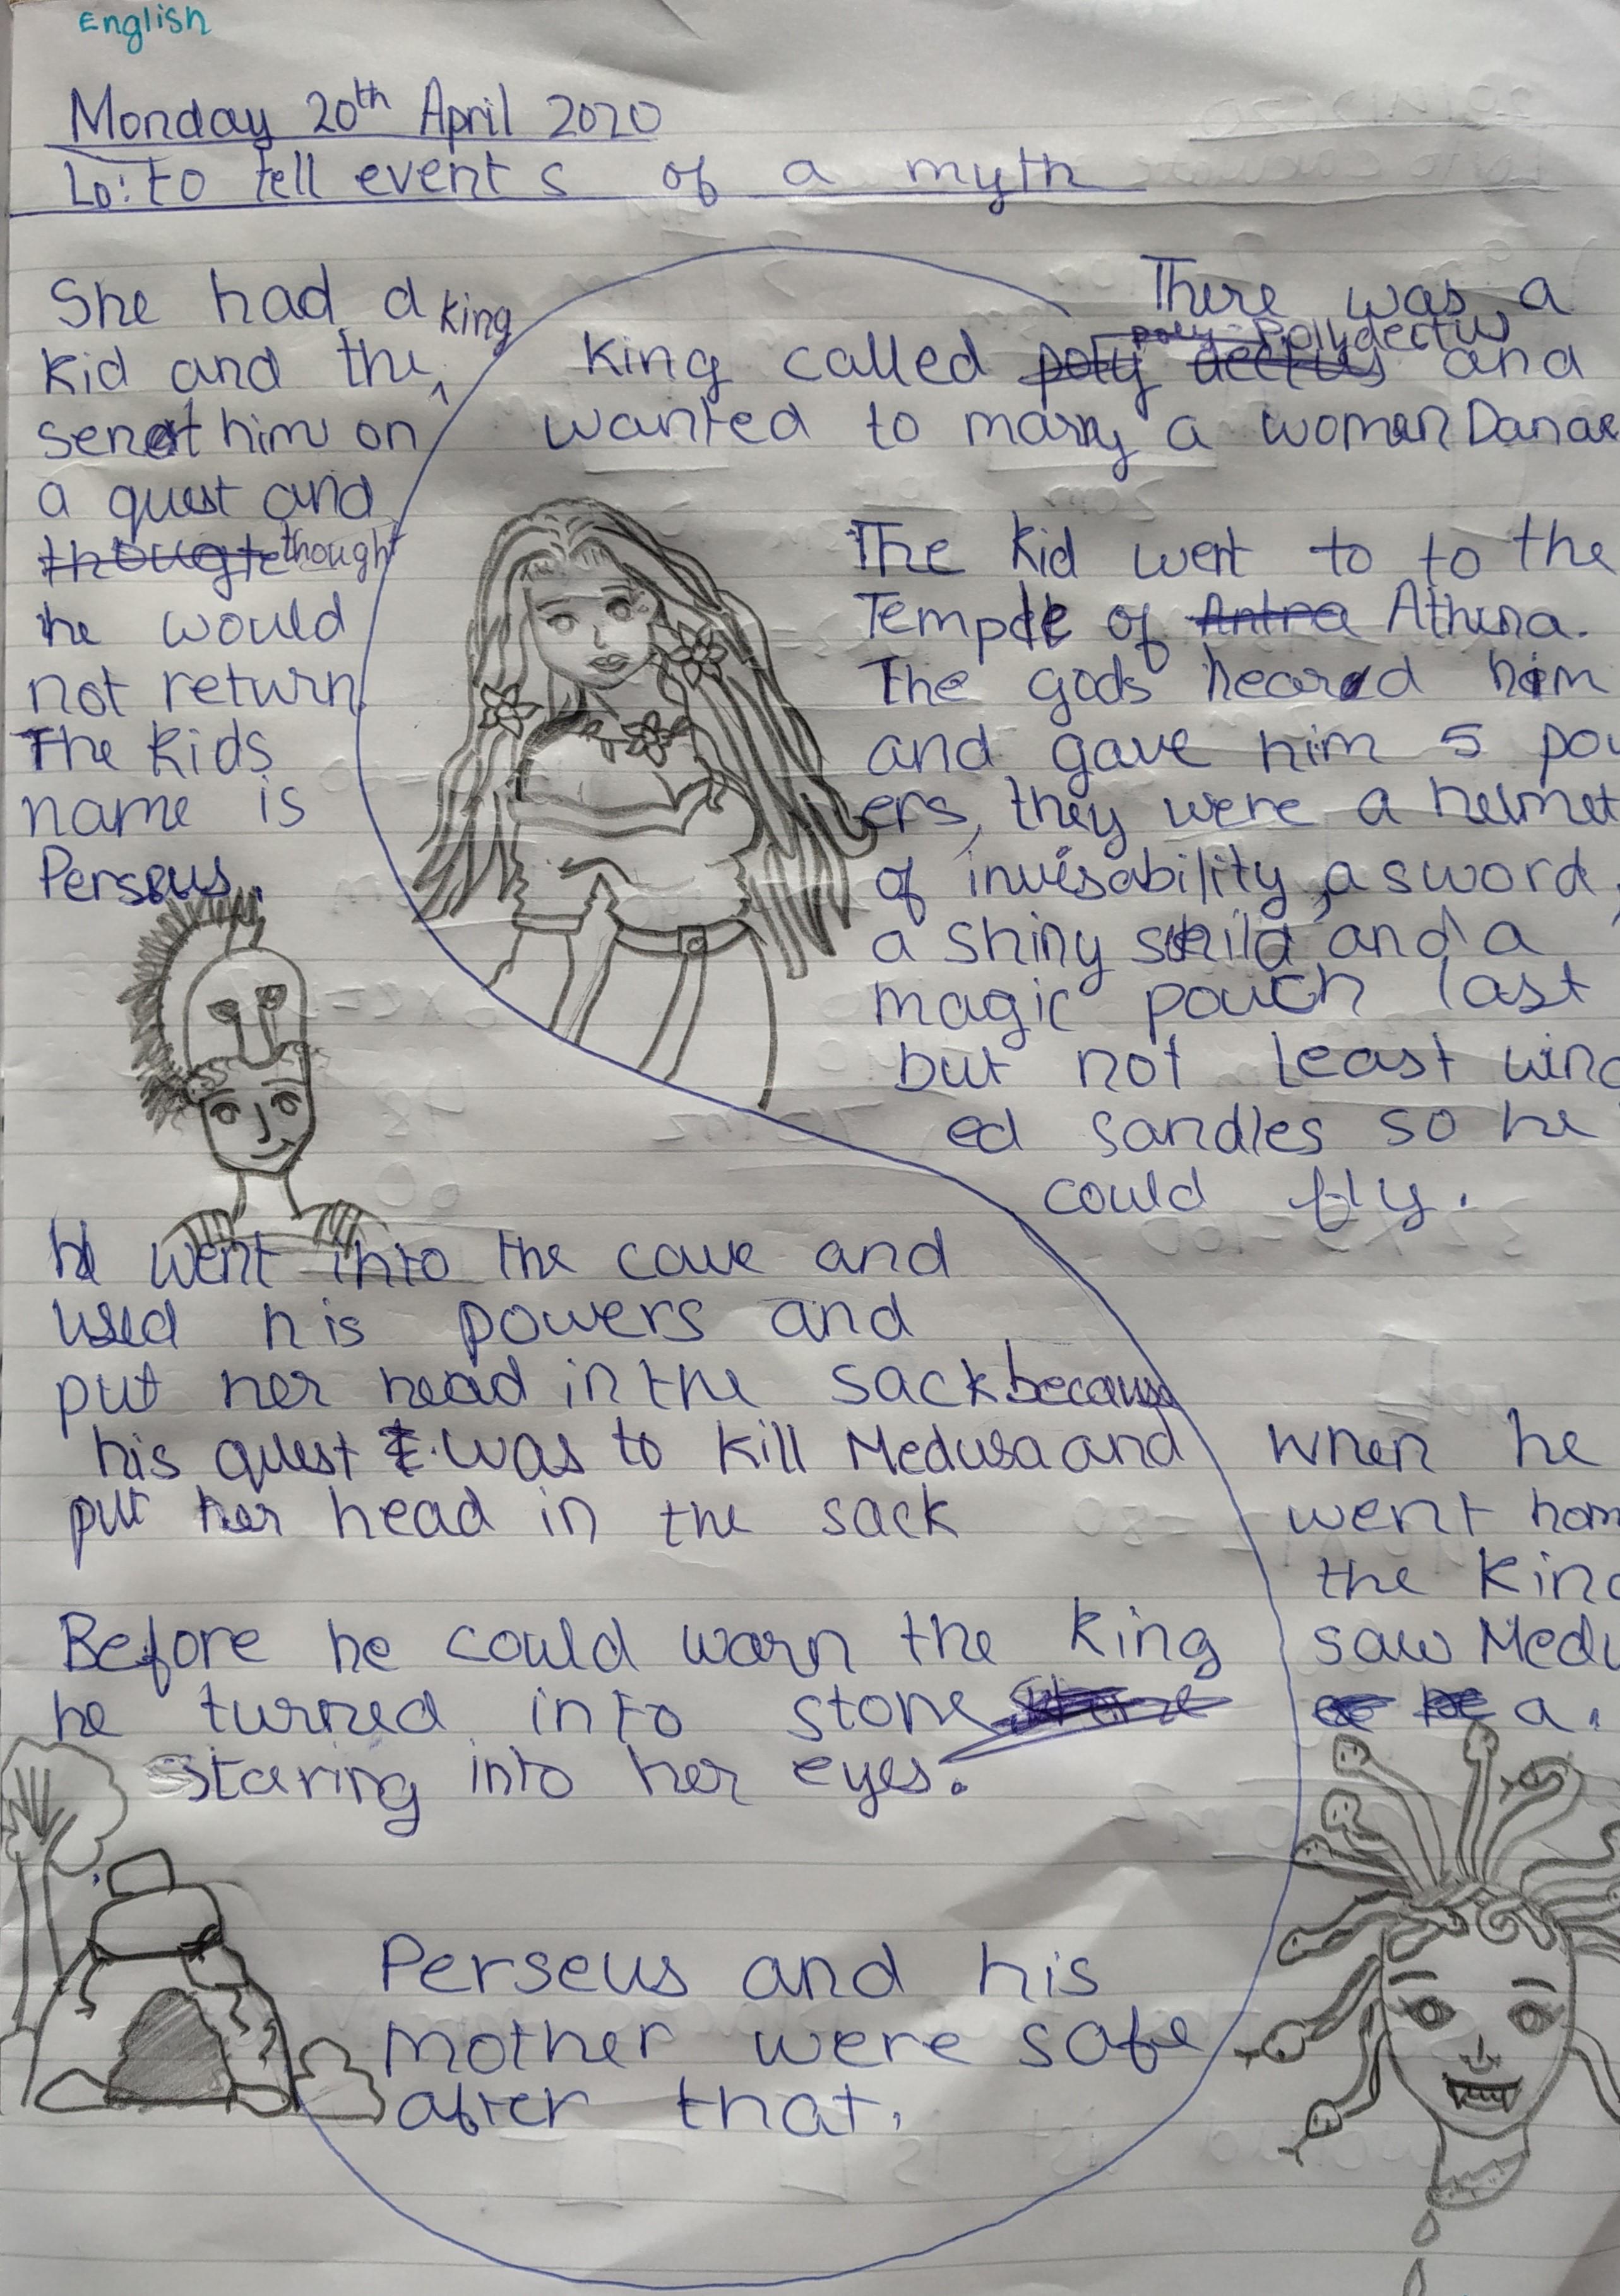 English
Monday 20th April 2020
Lo: to tell events of a myth
There was a
King called Polydectus and
wanted to marry a woman Danae
She had a
kid and the king
sent him on
a quest and
thought
he would
not return.
The kids
name is
Perseus.
The kid went to to the
Temple of Athena.
The gods heard him
and gave him 5 pow
ers, they were a helmet
of invisability, a sword,
a shiny shild and a
magic pouch last
but not least wing
ed sandles so he
could fly.
went into the cave and
used his powers and
put her head in the sack because
his quest was to kill Medusa and
put her head in the sack
When he
went hom
the King
saw Medu
a.
Before he could warn the king
he turned into stone
staring into her eyes.
Perseus and his
mother were safe
after that.